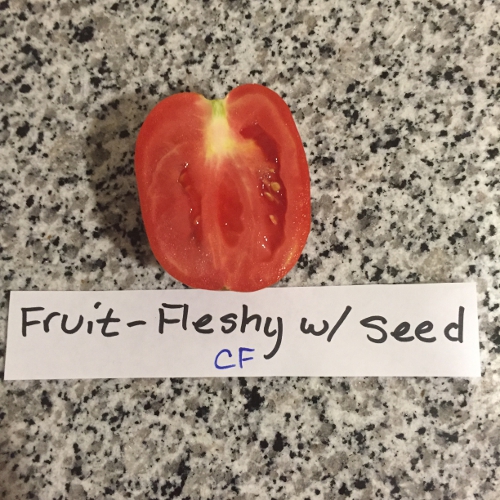 Fruit-Fleshy w/ Seed
CF